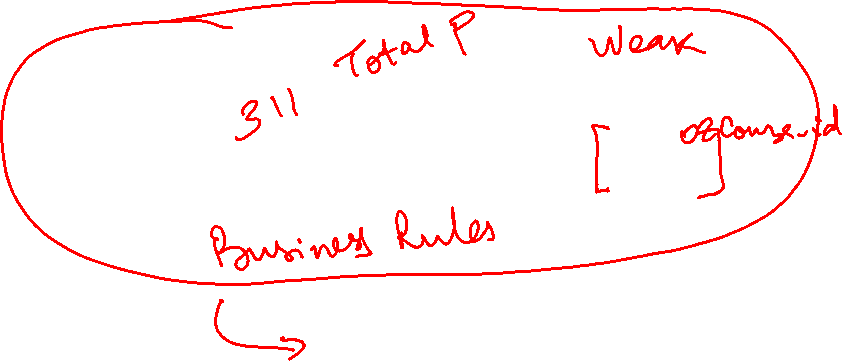 Total P Weak
311
Course-id
Business Rules